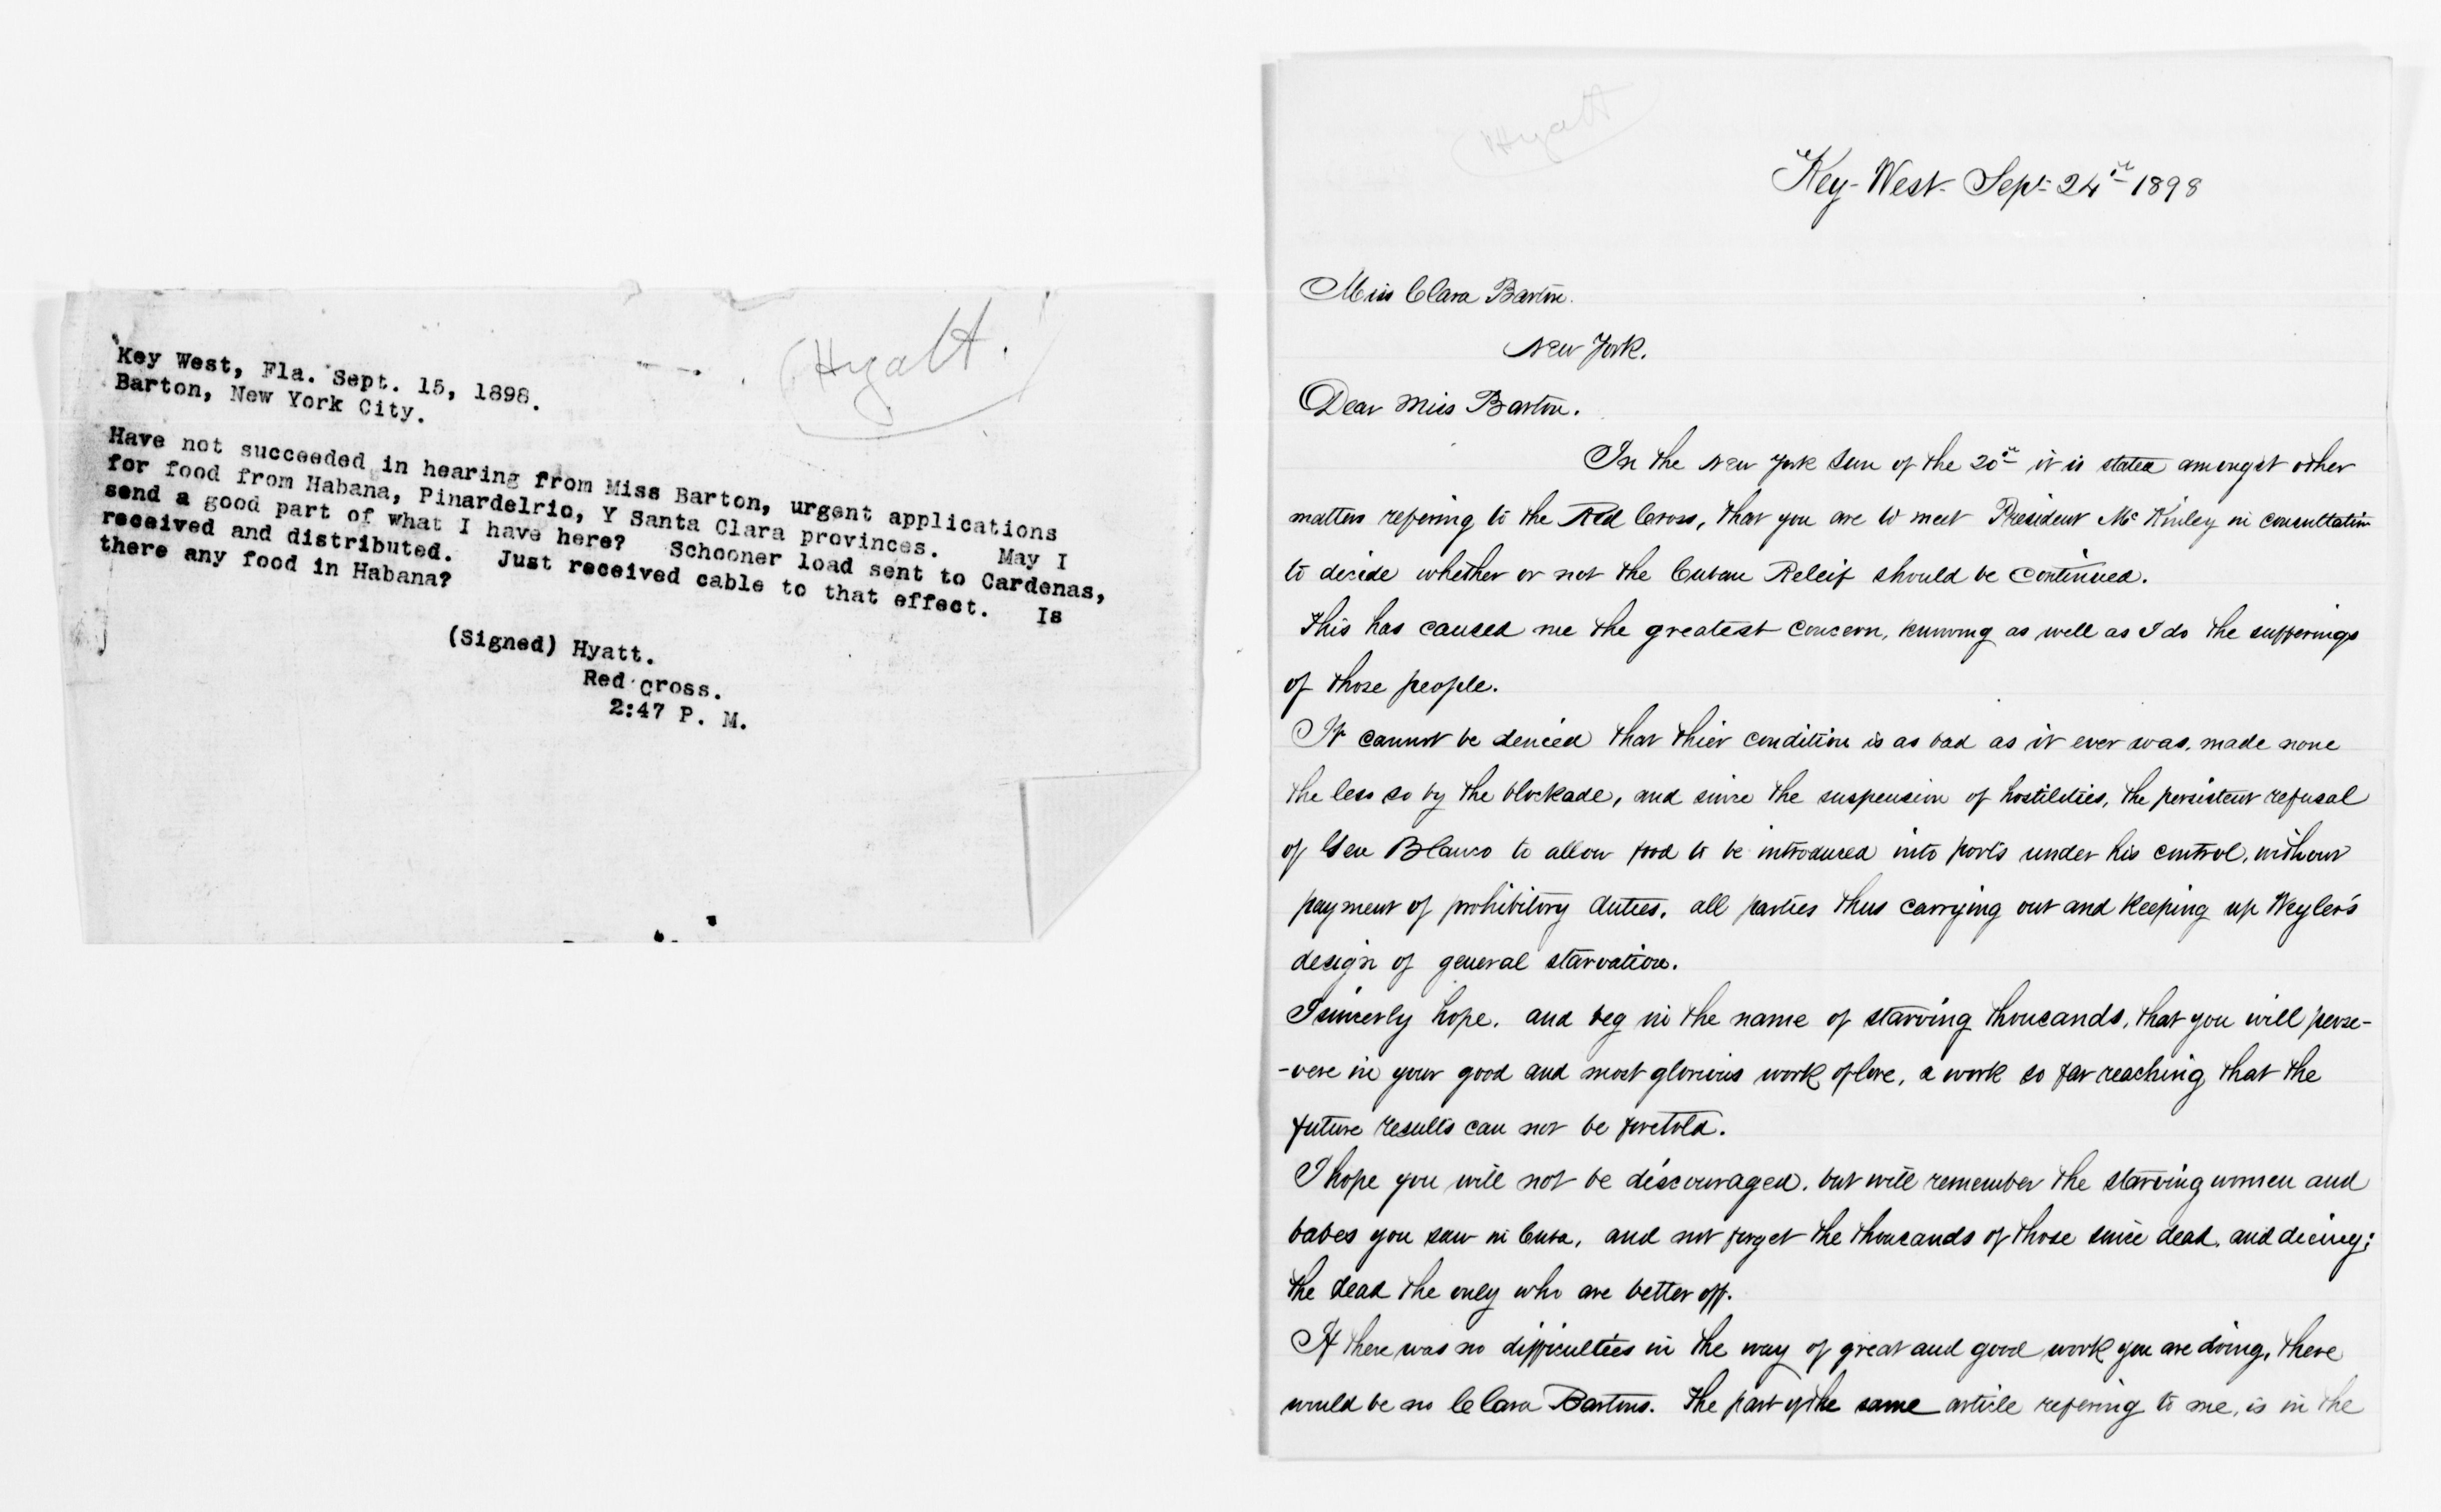 (Hyatt.
Key West, Fla. Sept. 15, 1898.
Barton, New York City.
Have not succeeded in hearing from Miss Barton, urgent applications
for food from Habana, Pinardelrio, Y Santa Clara provinces. May I
send a good part of what I have here? Schooner load sent to Cardenas,
received and distributed. Just received cable to that effect. Is
there any food in Habana?
(Signed) Hyatt.
Red Cross.
2:47 P. M.
(Hyatt
Key-West- Sept- 24th 1898
Miss Clara Barton.
New York.
Dear Miss Barton.
In the New York Sun of the 20th it is stated amongst other
matters refering to the Red Cross, that you are to meet President McKinley in consultation
to decide whether or not the Cuban Releif should be continued.
This has caused me the greatest concern, knowing as well as I do the sufferings
of those people.
It cannot be denied that thier condition is as bad as it ever was, made none
the less so by the blockade, and since the suspension of hostilities, the persistent refusal
of Gen Blanco to allow food to be introduced into ports under his control, without
payment of prohibitory duties, all parties thus carrying out and keeping up Weyler's
design of general starvation.
I sincerly hope, and beg in the name of starving thousands, that you will perse-
-vere in your good and most glorious work of love, a work so far reaching that the
future results can not be foretold.
I hope you will not be discouraged, but will remember the starving women and
babes you saw in Cuba, and not forget the thousands of those since dead, and dieing;
the dead the only who are better off.
If there was no difficulties in the way of great and good work you are doing, there
would be no Clara Bartons. The part of the same article refering to me, is in the